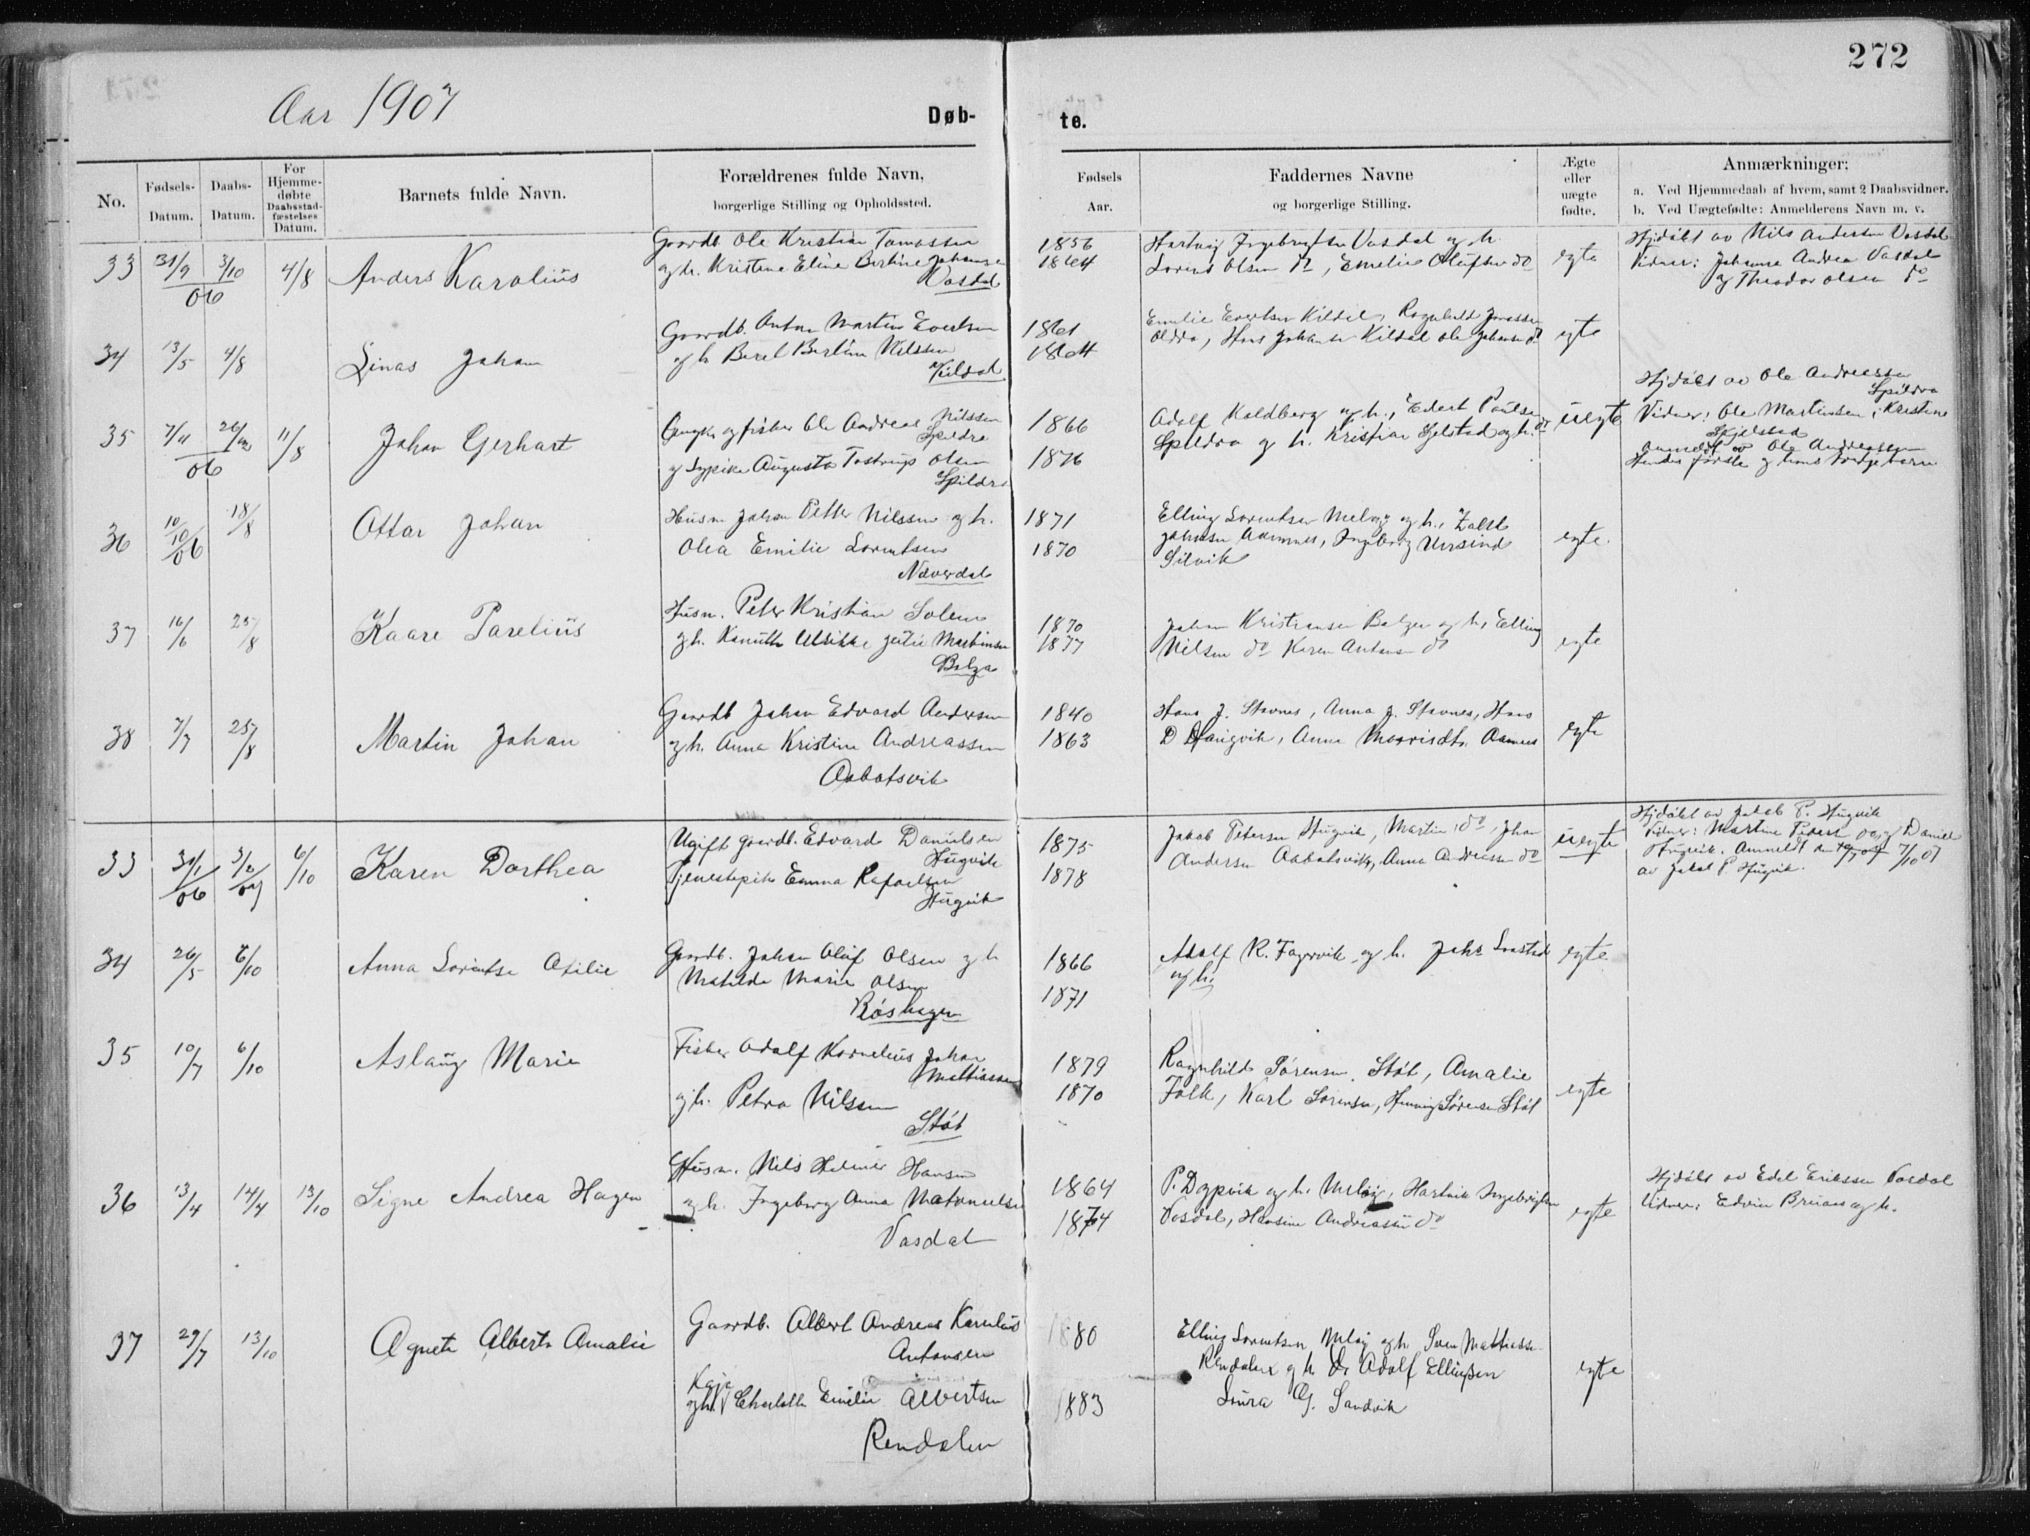 272
Aar 1907
Døb-
te.
No.
Fødsels-
Datum.
Daabs-
Datum.
For
Hjemme-
døbte
Daabsstad-
fæstelses
Datum.
Barnets fulde Navn.
Forældrenes fulde Navn,
borgerlige Stilling og Opholdssted.
Fødsels
Aar.
Faddernes Navne
og borgerlige Stilling.
Ægte
eller
uægte
fødte.
Anmærkninger;
a. Ved Hjemmedaab af hvem, samt 2 Daabsvidner.
b. Ved Uægtefødte: Anmelderens Navn m. v.
33 3/10 06 4/8 Anders Karolius
Gaardb. Ole Kristian Tomassen
og h. Kristine Eline Bertine Johanse
Vasdal
1856
1864
Hartvig Ingebrigtsen Vasdal og h.
Lorens Olsen do, Emelie Olufsen do
egte
Hjdøbt av Nils Andersen Vasdal
Vidner: Johanna Andrea Vasdal
og Theodor Olsen do
34 13/5 4/8 Linas Johan
Gaardb. Anton Martin Evertsen
og h Berel Bertine Nilssen
Kildal
1861
1864
Emelie Evertsen Kildal, Ragnhild Jonassen
Oldra, Hans Johansen Kildal Ole Johansen do
egte
35 7/11 06 11/8 Johan Gerhart
Ungk. og fisker Ole Andreas Nilssen
Spildra
og Sypike Augusta Tostrup Olsen
Spildra
1866
1876
Adolf Kaldberg og h., Edert Paulsen
Spildra og h. Kristian Selstad og h. do
uegte
Hjdøbt av Ole Andreassen
Spildra
Vidner: Ole Martinsen, Kristine
Anmeldt av Ole Andreassen
Hendes første og hans tredje barn
36 10/10 06 18/8 Ottar Johan
Husm Johan Petter Nilssen og h.
Olea Emilie Lorentsen
Næverdal
1871
1870
Elling Lorentsen Meløy og h.,
Johnsen Aamnes, Ingeborg Ursind
Silvik
egte.
37 16/6 25/8 Kaare Parelius
Husm. Peter Kristian Solem
og h. Kanutte Ulrikke Julie Martinsen
Bolga
1870
1877
Johan Kristiansen Bolgen og h, Elling
Nilsen do Karen Antonsen do
egte
38 7/7 25/8 Martin Johan
Gaardb Johan Edvard Andersen
og h. Anna Kristine Andreassen
Aabotsvik
1840
1863
Hans J. Stavnes, Anna J. Stavnes, Hans
egte
33 31/1 06 6/10 Karen Dorthea
Ugift gaardb. Edvard Danielsen
Hugvik
Tjenestepike Emma Rafaelsen
Hugvik
1875
1878
Jakob Petersen Hugvik, Martin do, Johan
Andersen Aabotsvik, Anna Andreassen do
uegte
Hjdøbt av Jakob P. Hugvik
Hugvik. Anmeldt den 7/10 07
av Jakob P Hugvik.
34 26/5 6/10 Anna Lorentse Otilie
Gaardb. Johan Oluf Olsen og h
Matilde Marie Olsen
Røshagen
1866
1871
Adolf R. Fagervik og h.
og h.
egte
35 10/7 6/10 Aslaug Marie
Fisker Adolf Kornelius Johan
Mattiassen
og h. Petra Nilssen
Støt
1879
1870
Ragnhild Sørensen Støt, Amalie
Falk, Karl Sørensen, Henning Sørensen Støt
egte
36 13/4 14/4 13/10 Signe Andrea Hagen
Husm. Nils Helmer Hansen
og h. Ingeborg Anna
Vasdal
1864
1874
P. Dypvik og h. Meløy, Hartvik Ingebrigtsen
Vasdal, Hansine Andreassen do
egte
Hjdøbt av Edel Eriksen Vasdal
Vidner: Edvin Bruaas og h.
37 29/7 13/10 Agnete Alberte Amalie
Gaardb. Albert Andreas Karelius
Antonsen
Kaja
og h. Charlotte Emilie Albertsen
Rendalen
1880
1883
Elling Lorentsen Meløy og h Sven Mattiassen
Rendalen og h do Adolf Ellingsen
Laura G. Sandvik
egte